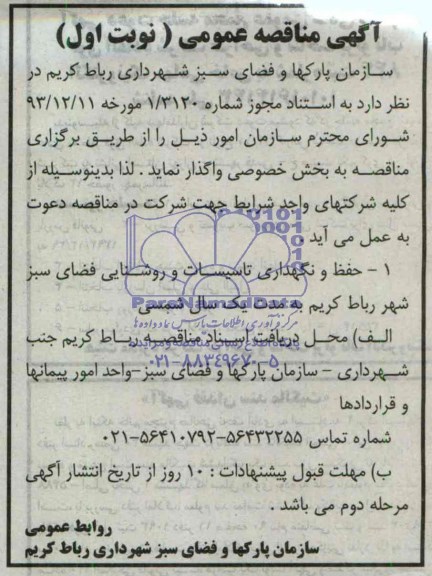 آگهی مناقصه عمومی ( نوبت اول)
سازمان پارکها و فضای سبز شهرداری رباط کریم در
نظر دارد به استناد مجوز شماره ۱/۳۱۲۰ مورخه ۹۳/۱۲/۱۱
شورای محترم سازمان امور ذیل را از طریق برگزاری
مناقصه به بخش خصوصی واگذار نماید . لذا بدینوسیله از
کلیه شرکتهای واجد شرایط جهت شرکت در مناقصه دعوت
به عمل می آید
۱ - حفظ و نگهداری تاسیسات و روشنایی فضای سبز
شهر رباط کریم به مدت یک سال شمسی
ParsNamadData
مرکز فرآوری اطلاعات پارس نماد داده ها
الف) محل دریافت اسناد مناقصه رباط کریم جنب
۰۲۱-۸۸۳۴۹۶۷۰-۵
شهرداری - سازمان پارکها و فضای سبز-واحد امور پیمانها
و قراردادها
شماره تماس ۵۶۴۳۲۲۵۵-۰۲۱-۵۶۴۱۰۷۹۲
ب) مهلت قبول پیشنهادات : ۱۰ روز از تاریخ انتشار آگهی
مرحله دوم می باشد .
روابط عمومی
سازمان پارکها و فضای سبز شهرداری رباط کریم